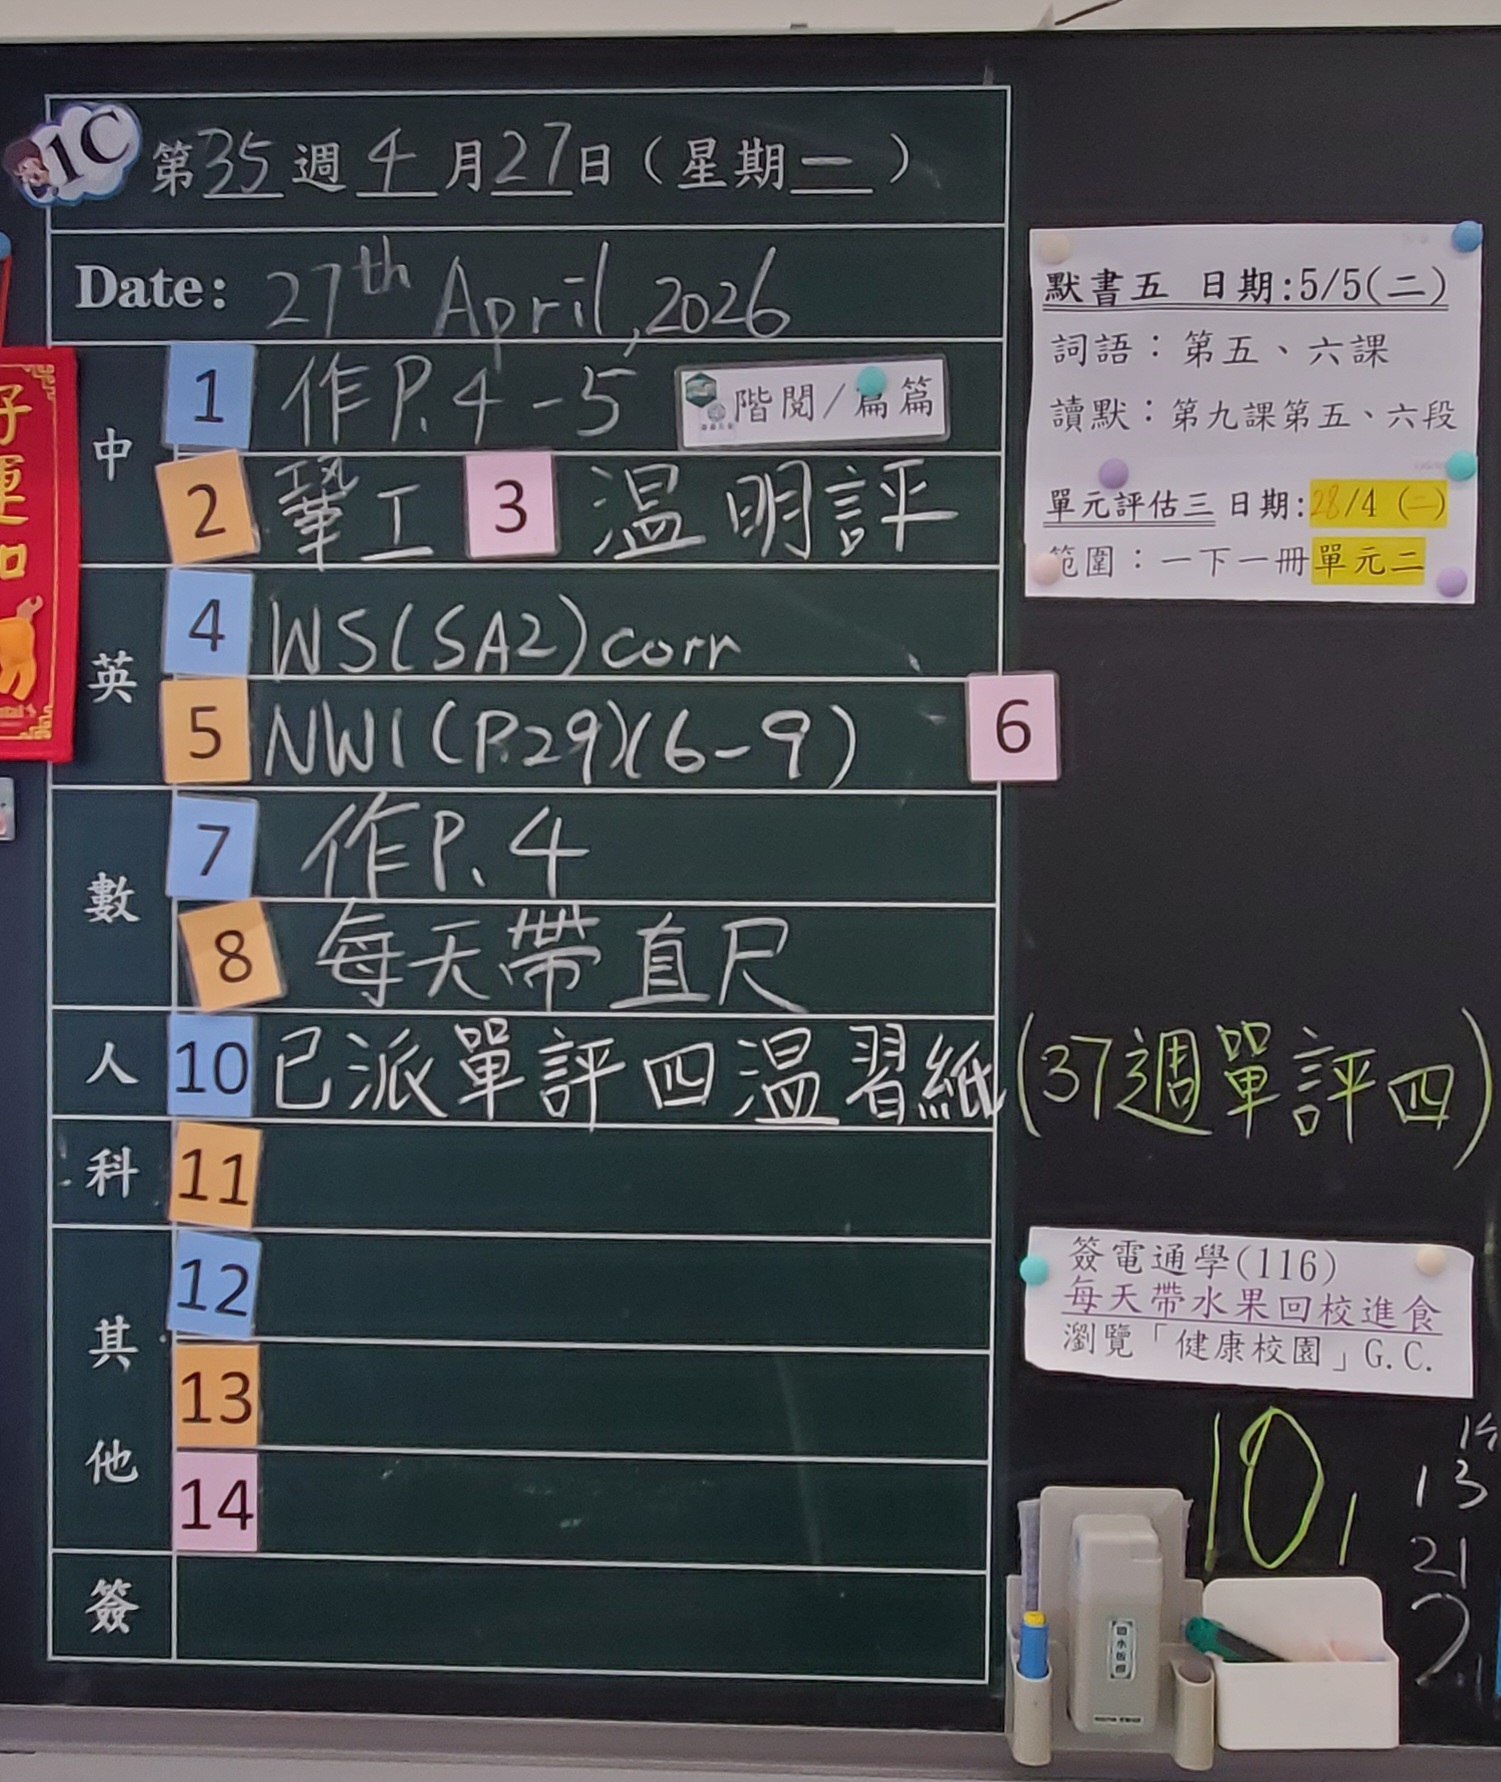 1C
第35週4月27日（星期一）
Date: 27th April, 2026
中
1 作P.4-5 階閱/篇篇
2 工 3 温明評
英
4 WS(SA2)corr
5 NW1(P.29)(6-9) 6
數
7 作P.4
8 每天帶直尺
人
10 已派單評四温習紙(37週單評四)
科
11
其
12
13
他
14
簽
默書五 日期:5/5(二)
詞語：第五、六課
讀默：第九課第五、六段
單元評估三 日期:28/4(二)
範圍：一下一冊單元二
簽電通學(116)
每天帶水果回校進食
瀏覽「健康校園」G.C.
10,
13
21
好
運